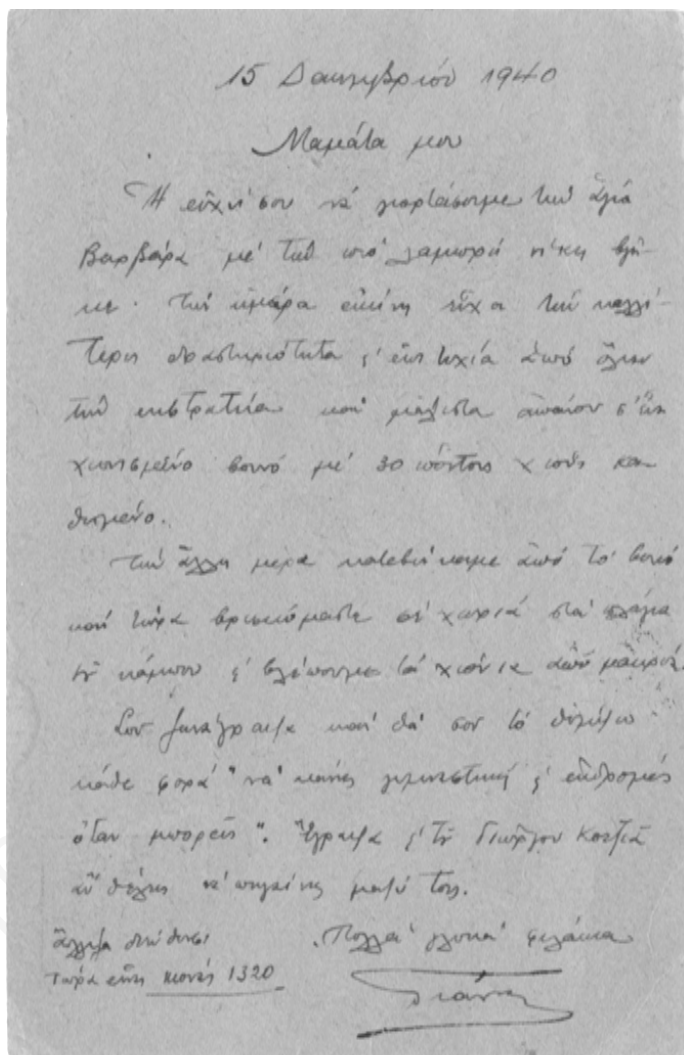 15 Δεκεμβρίου 1940
Μαμάκα μου
Ἡ εὐχή σου νά γιορτάσουμε τήν ἁγία
Βαρβάρα μέ τήν πιό λαμπρή νίκη βγῆ-
κε. Τήν ἡμέρα ἐκείνη εἶχα τήν καλλί-
τερη δραστηριότητα ἐπιτυχία ἀπό ὅλην
τήν ἐκστρατεία καί μάλιστα ἀπάνου σ' ἕνα
χιονισμένο βουνό μέ 30 πόντους χιόνι κα-
θισμένο.
Τήν ἄλλη μέρα κατεβήκαμε ἀπό τό βουνό
καί τώρα βρισκόμαστε σέ χωριά στά πλάγια
τοῦ κάμπου βλέπουμε τά χιόνια ἀπό μακρυά.
Σου ξανάγραψα καί θά σου τό θυμίζω
κάθε φορά "νά κάνης γυμναστική ἐκδρομές
ὅταν μπορεῖς". Ἔγραψα τοῦ Γιώργου Κοτζιᾶ
ἄν θέλης νά πηγαίνης μαζύ τους.
ἄλλαξα διεύθυνσι Πολλά γλυκά φιλάκια
Τώρα εἶναι 1320